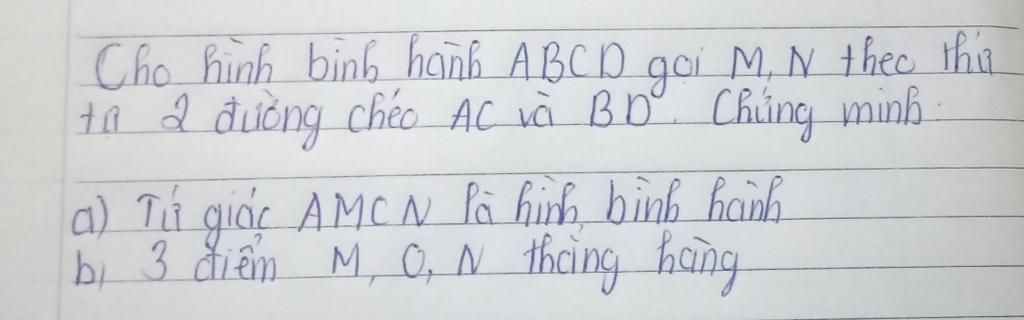 Cho hình bình hành ABCD gọi M, N theo thứ
tự 2 đường chéo AC và BD. Chứng minh:
a) Tứ giác AMCN là hình bình hành
b) 3 điểm M, O, N thẳng hàng